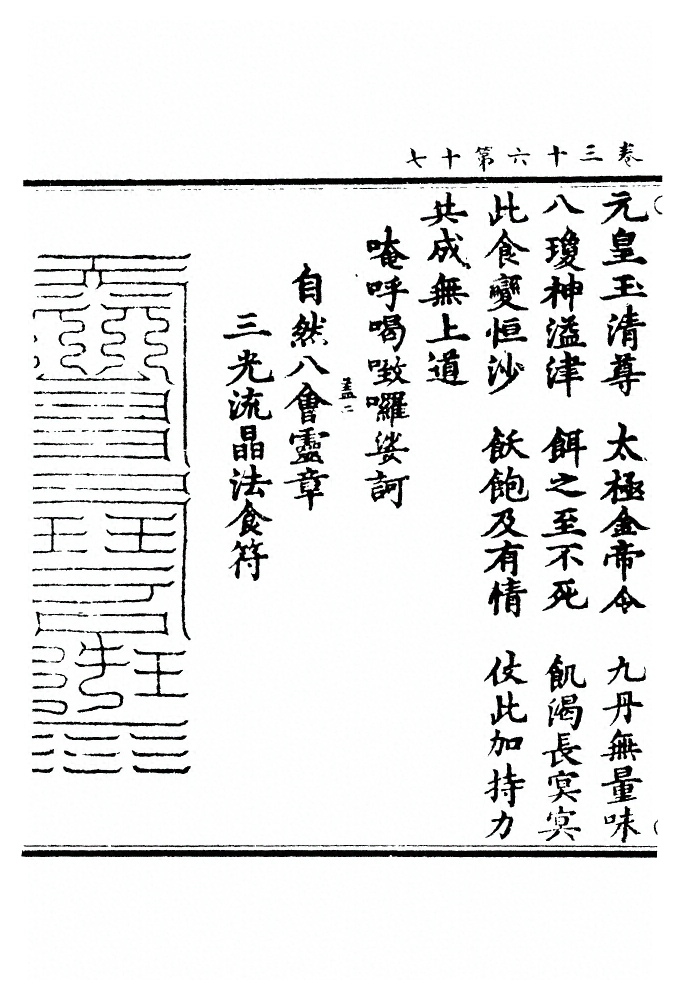 卷三十六第十七
元皇玉清尊　太極金帝令　九丹無量味
八瓊神溢津　餌之至不死　飢渴長冥冥
此食變恒沙　飫飽及有情　仗此加持力
共成無上道
唵呼喝㗌囉娑訶
蓋二
自然八會靈章
三光流晶法食符